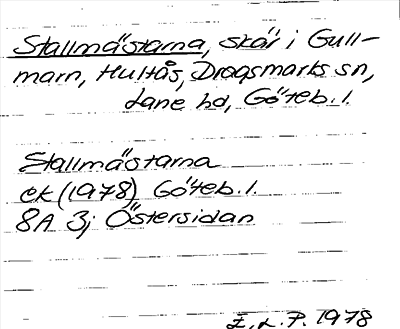 Stallmästarna, skär i Gull-
marn, Hultås, Dragsmarks sn,
Lane hd, Göteb. l.
Stallmästarna
ek (1978) Göteb. l.
8A 3j Östersidan
E. L. P. 1978